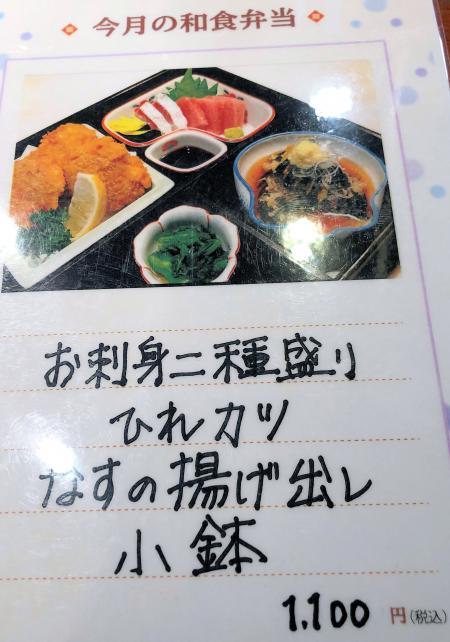 今月の和食弁当
お刺身二種盛り
ひれカツ
なすの揚げ出し
小鉢
1.100 円(税込)